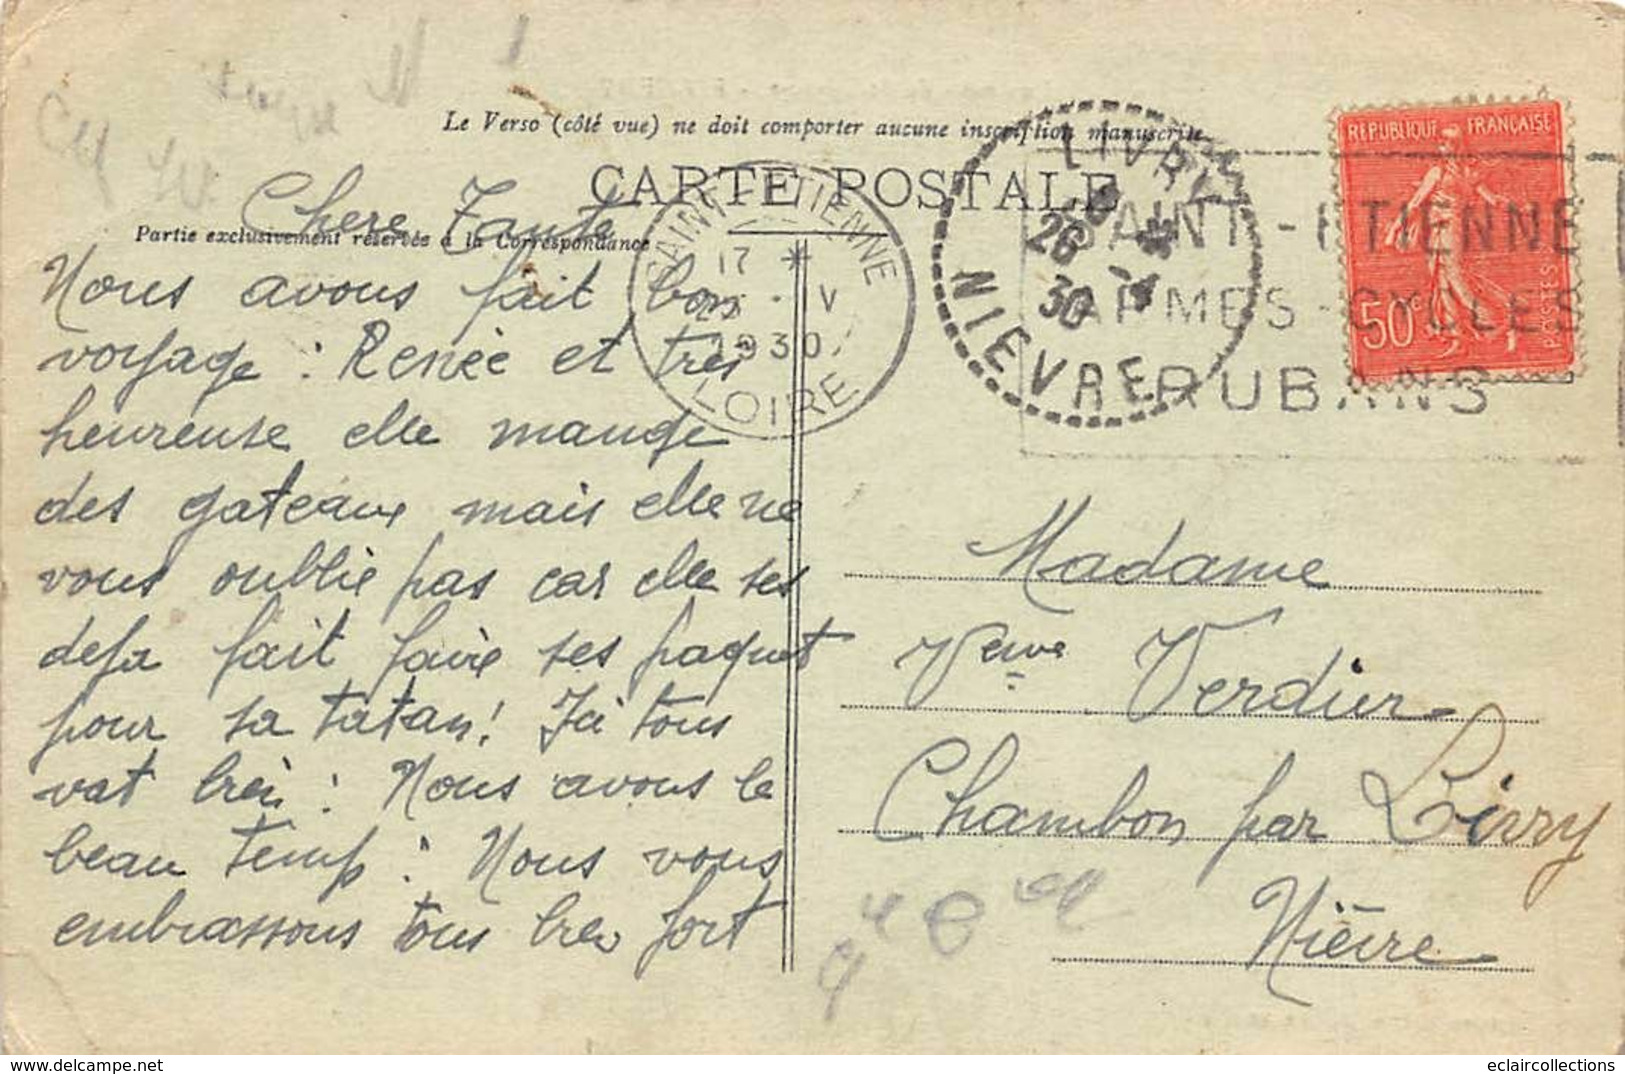 Le Verso (côté vue) ne doit comporter aucune inscription manuscrite
CARTE POSTALE
Partie exclusivement réservée à la Correspondance
Chere Tante
Nous avons fait bon
voyage : Renée et tres
heureuse elle mange
des gateaux mais elle ne
vous oublie pas car elle ses
deja fait faire ses paquet
pour sa tatan! Ici tous
vat bien : Nous avons le
beau temp : Nous vous
embrassons tous bien fort
SAINT-ETIENNE
17 *
V
1930
LOIRE
LIVRY
26 -4
30
NIEVRE
SAINT-ETIENNE
ARMES-CYCLES
RUBANS
REPUBLIQUE FRANÇAISE
50c
POSTES
Madame
Veuve Verdier
Chambon par Livry
Nièvre
eclaircollections